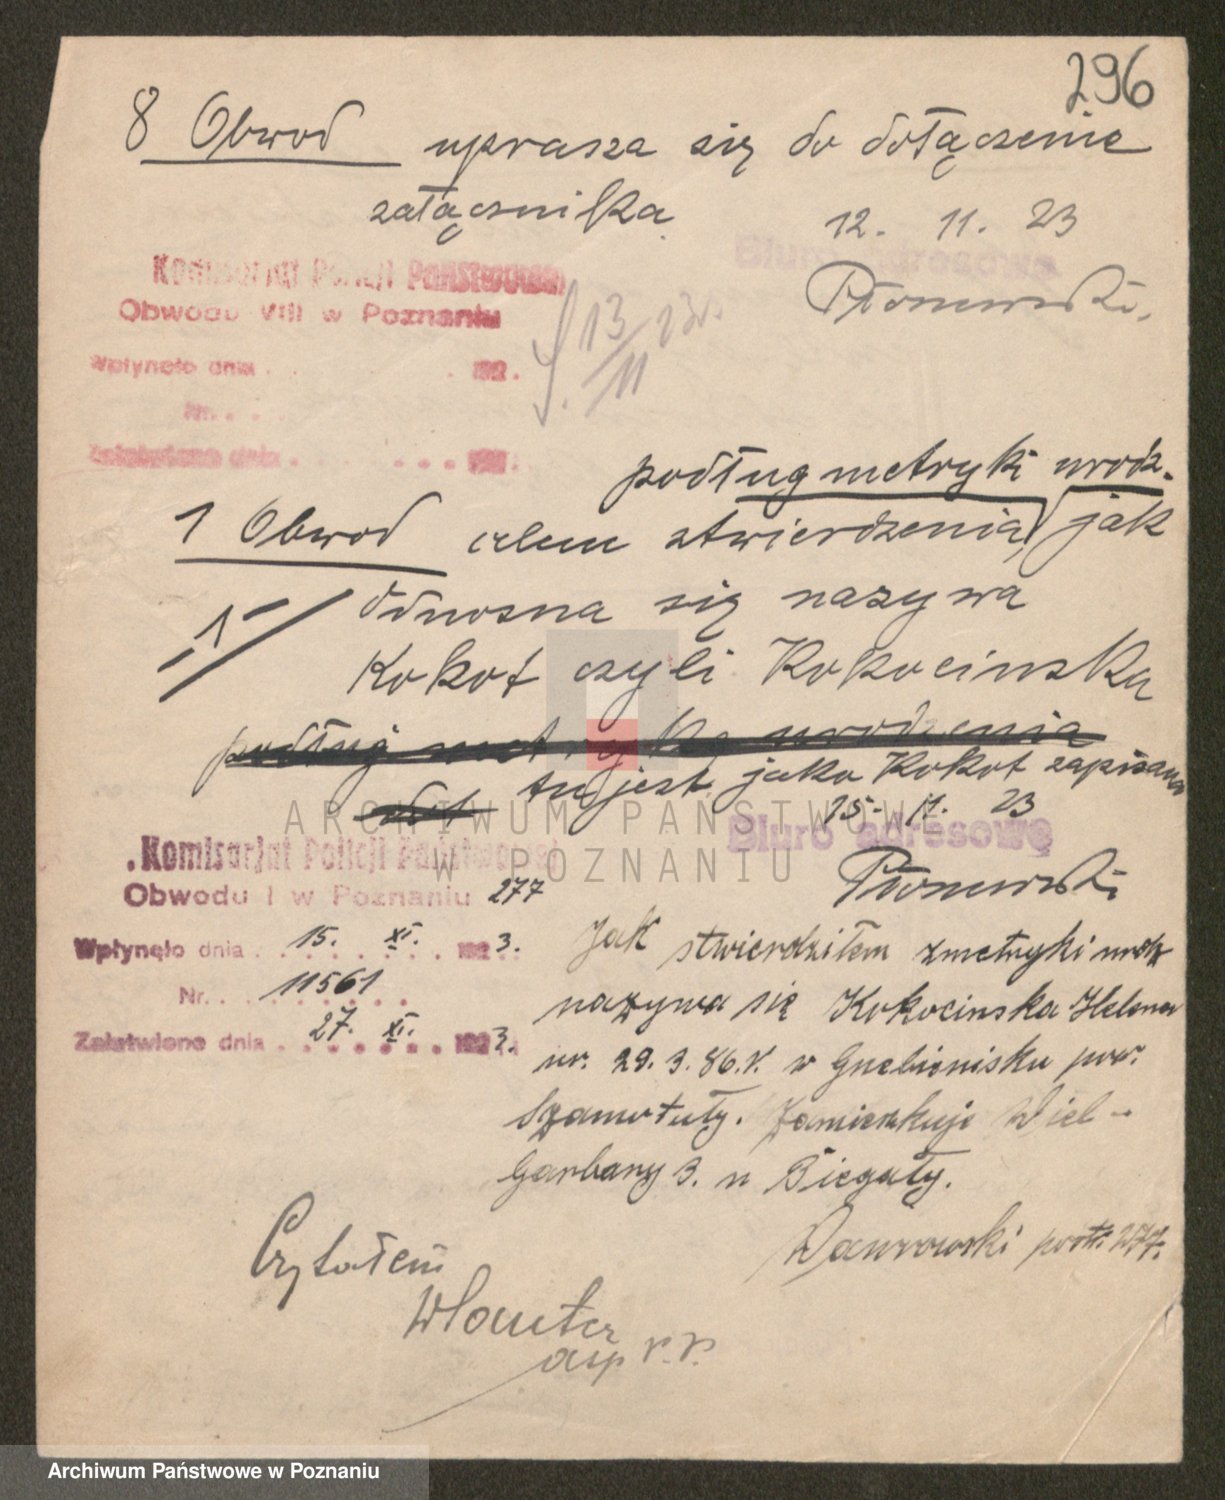 296
8 Obwod uprasza się do dołączenie
załącznika
12. 11. 23
Biuro adresowe
Komisarjat Policji Państwowej
Obwodu VIII w Poznaniu
Wpłynęło dnia . . 192 .
Nr. . . .
Załatwiono dnia . . . . . 192 .
13/11 23r.
podług metryki urodz.
1 Obwod celem stwierdzenia jak
odnosna się nazywa
Kokot czyli Kokocinska
podług metryka urodzenia
tu jest jako Kokot zapisana
15. 11. 23
Biuro adresowe
Komisarjat Policji Państwowej
Obwodu I w Poznaniu 277
Wpłynęło dnia 15. XI. 1923.
Nr. 11561
Załatwiono dnia 27. XI. 1923.
Jak stwierdziłem z metryki urodz
nazywa się Kokocinska Helena
ur. 29. 3. 86. r. w pow.
Szamotuły. Zamieszkuje Wiel-
Garbary 3. u Bieguły.
Dawrowski post. 277.
Czytałem
asp P.P.
ARCHIWUM PAŃSTWOWE
W POZNANIU
Archiwum Państwowe w Poznaniu